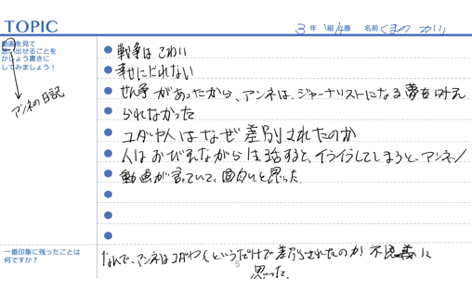 TOPIC
3年 組4番 名前
動画を見て
思い出せることを
かじょう書きに
してみましょう!
アンネの日記
戦争は こわい
幸せになれない
せん争があったから、アンネは、ジャーナリストになる夢を叶え
られなかった
ユダヤ人はなぜ差別されたのか
人はおびえながら生活すると、イライラしてしまうと、アンネの
動画が言っていて、面白いと思った
一番印象に残ったことは
何ですか?
なんで、アンネはユダヤ人というだけで差別されたのか 不思議に
思った